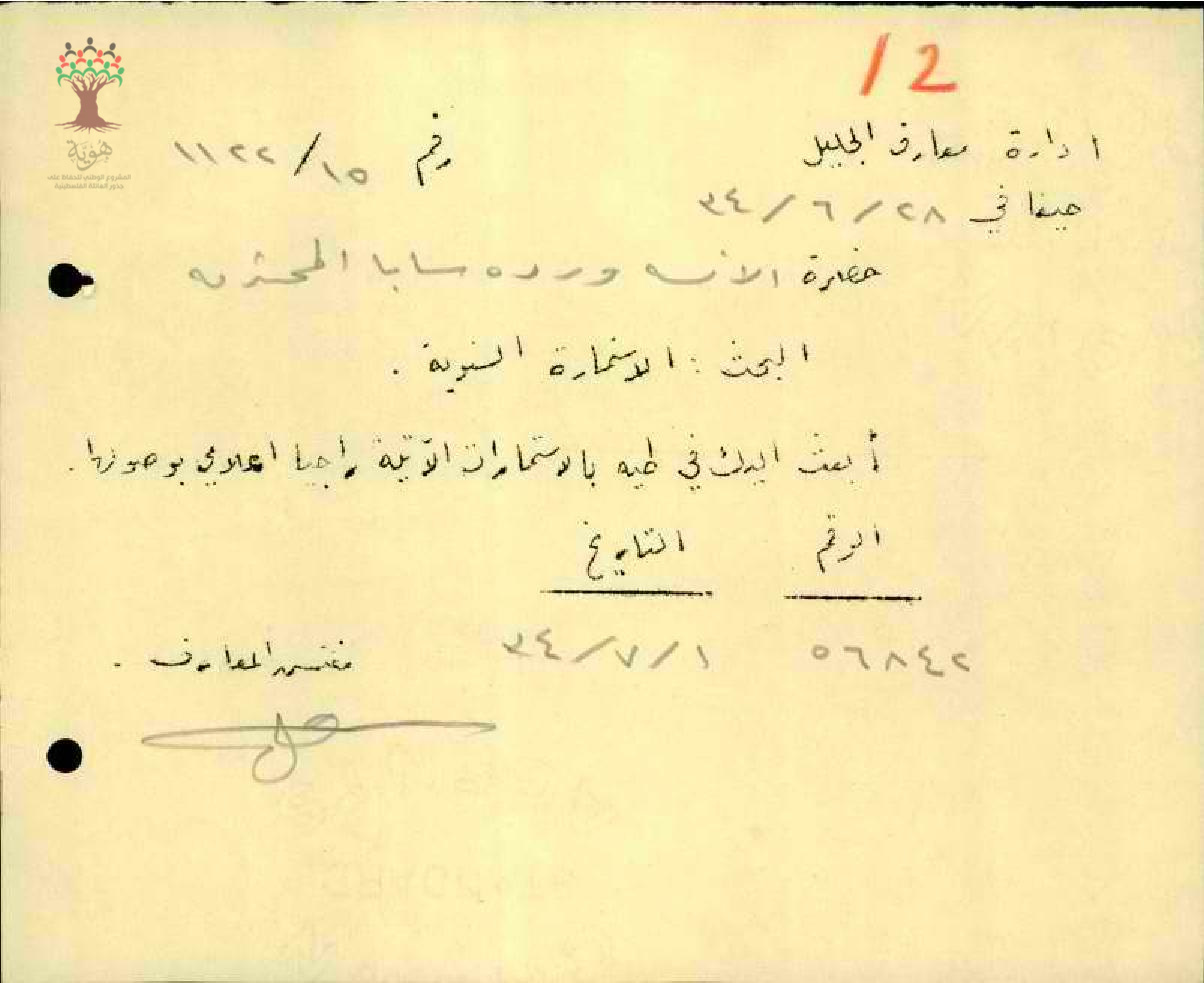 12
ادارة معارف الجليل
رقم ١٥/١١٢٢
حيفا في ٢٨/٦/٣٤
حضرة الانسه ورده سابا المحترمه
البحث : الاستمارة السنوية .
أبعث اليك في طيه بالاستمارات الآتية راجيا اعلامي بوصولها .
الرقم التاريخ
٥٦٨٤٢ ١/٧/٣٤
مفتش المعارف .
هوية
المشروع الوطني للحفاظ على
جذور العائلة الفلسطينية